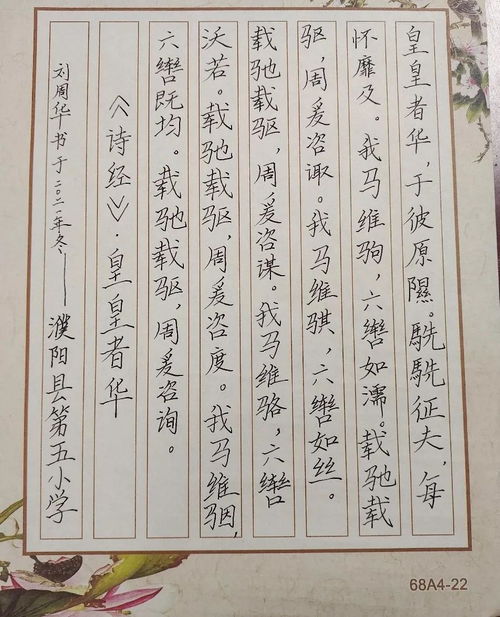 皇皇者华，于彼原隰。駪駪征夫，每
怀靡及。我马维驹，六辔如濡。载驰载
驱，周爰咨诹。我马维骐，六辔如丝。
载驰载驱，周爰咨谋。我马维骆，六辔
沃若。载驰载驱，周爰咨度。我马维骃，
六辔既均。载驰载驱，周爰咨询。
《诗经》·皇皇者华
刘周华书于二〇二一年冬——濮阳县第五小学
68A4-22